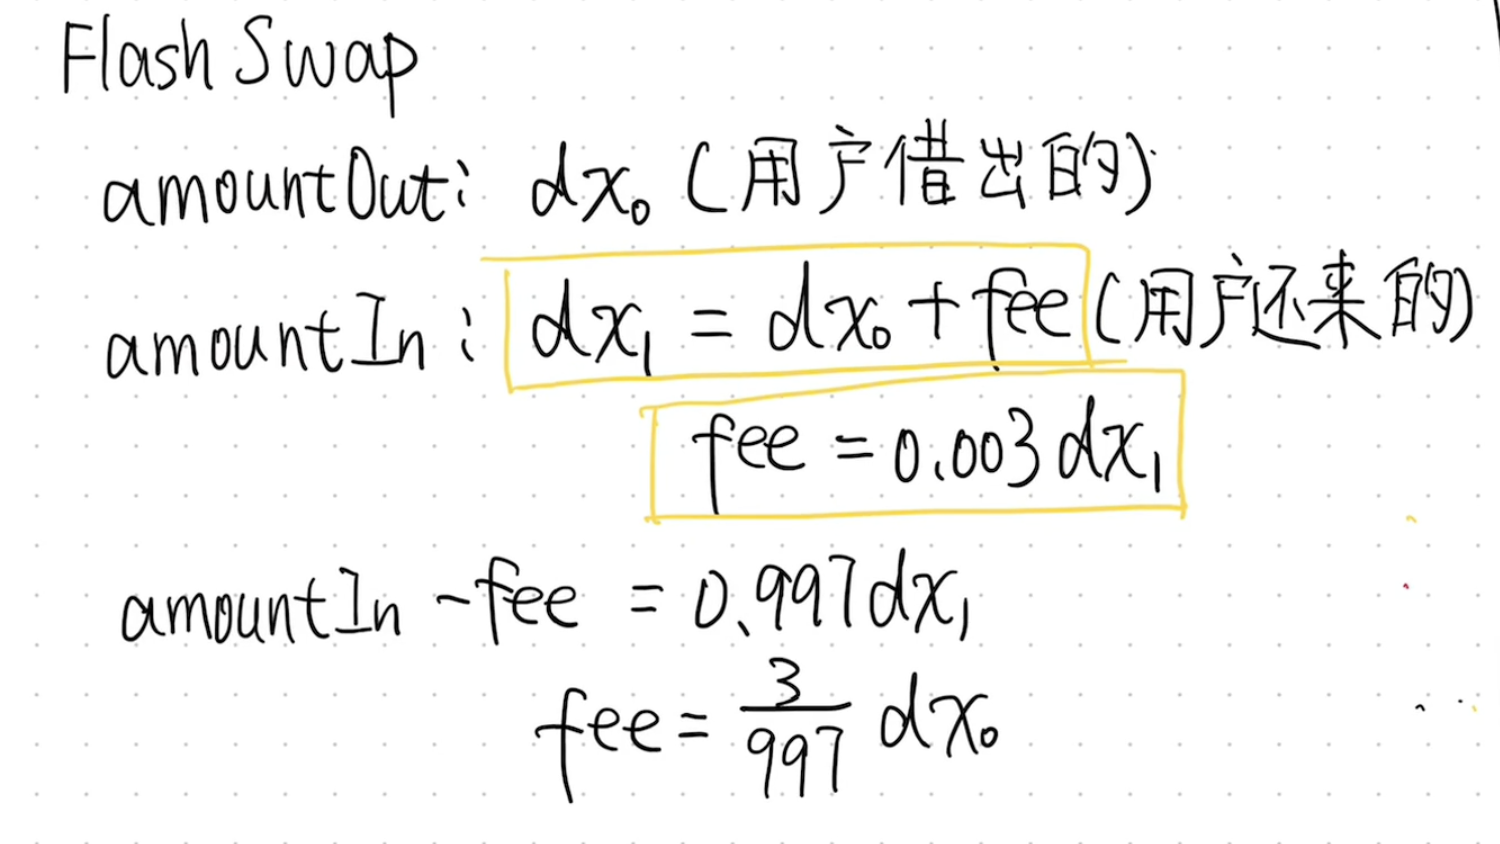 Flash Swap
amountOut: dx₀ (用户借出的)
amountIn: dx₁ = dx₀ + fee (用户还来的)
fee = 0.003 dx₁
amountIn - fee = 0.997 dx₁
fee = 3/997 dx₀